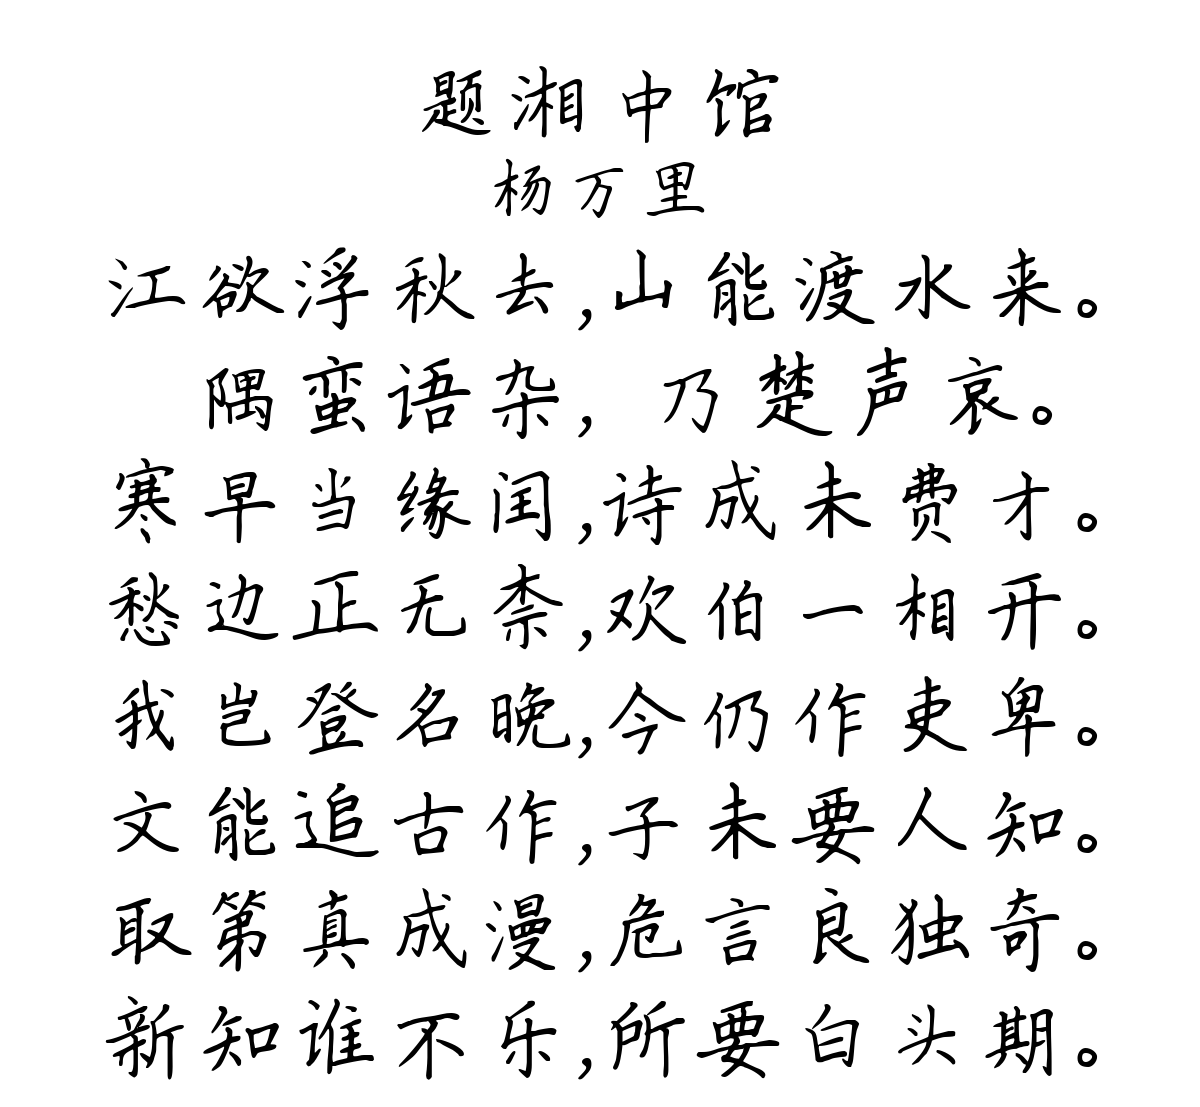 题湘中馆
杨万里
江欲浮秋去,山能渡水来。
隅蛮语杂,乃楚声哀。
寒早当缘闰,诗成未费才。
愁边正无柰,欢伯一相开。
我岂登名晚,今仍作吏卑。
文能追古作,子未要人知。
取第真成漫,危言良独奇。
新知谁不乐,所要白头期。